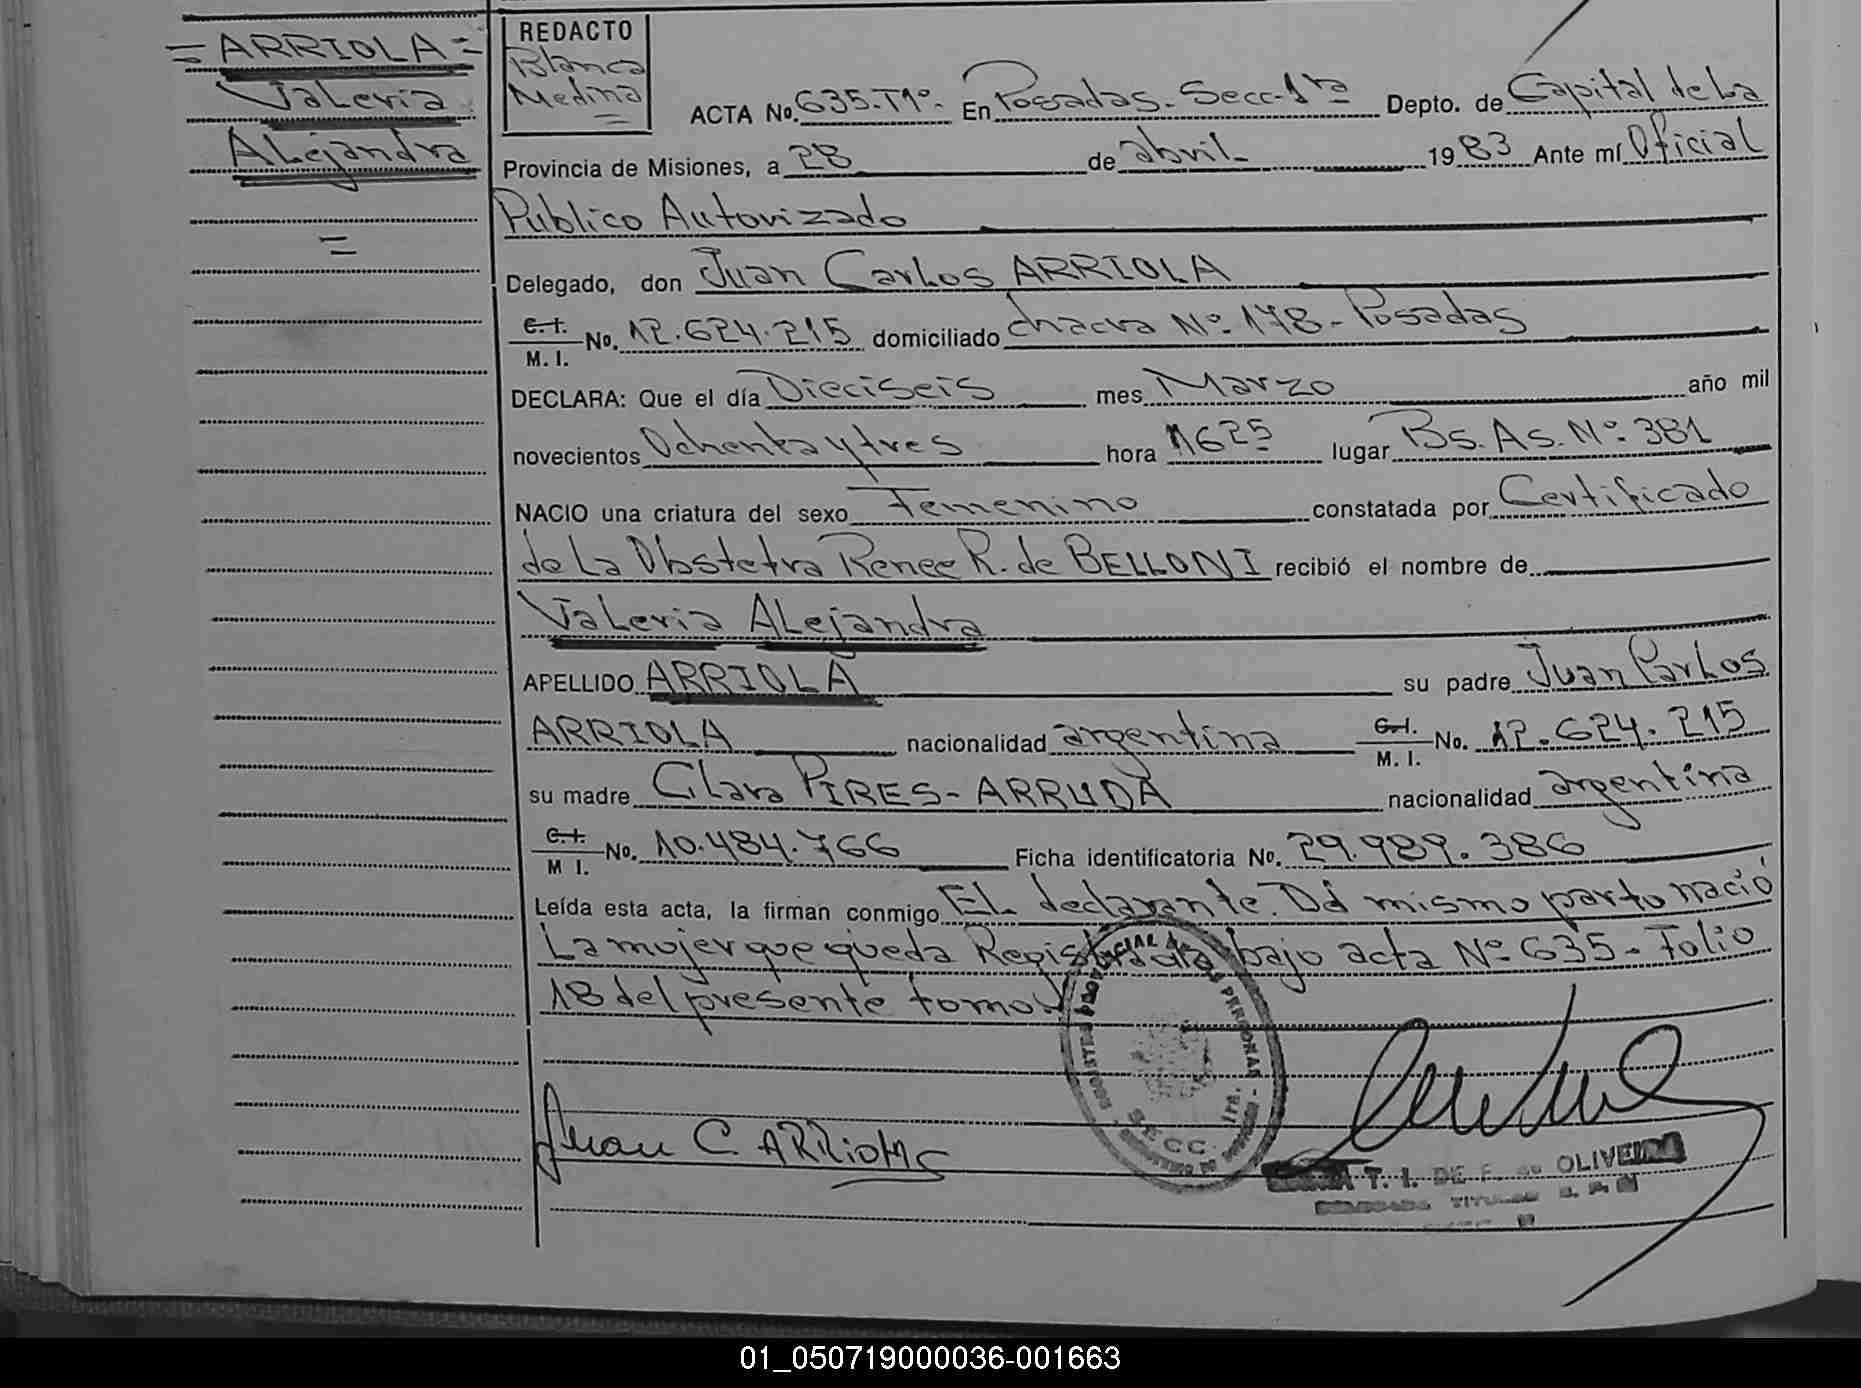 = ARRIOLA =
Valeria
Alejandra
=
REDACTO
Blanca
Medina
ACTA No. 635-T1º- En Posadas-Secc-1ra Depto. de Capital de La
Provincia de Misiones, a 28 de abril- 1983 Ante mí Oficial
Publico Autorizado
Delegado, don Juan Carlos ARRIOLA
C.I. M. I. No. 12.624.215 domiciliado chacra Nº 178-Posadas
DECLARA: Que el día Dieciseis mes Marzo año mil
novecientos Ochenta y tres hora 1625 lugar Bs. As. Nº 381
NACIO una criatura del sexo Femenino constatada por Certificado
de La Obstetra Renee R. de BELLONI recibió el nombre de
Valeria Alejandra
APELLIDO ARRIOLA su padre Juan Carlos
ARRIOLA nacionalidad argentina C.I. M. I. No. 12.624.215
su madre Clara PIRES-ARRUDA nacionalidad argentina
C.I. M I. No. 10.484.766 Ficha identificatoria No. 29.989.386
Leída esta acta, la firman conmigo EL declarante. Del mismo parto nació
La mujer que queda Registrada bajo acta Nº 635-Folio
18 del presente tomo.
REGISTRO PROVINCIAL DE LAS PERSONAS
SECC. 1ra.
Juan C. ARRIOLA
T. I. DE F. de OLIVEIRA
DELEGADA TITULAR
01_050719000036-001663